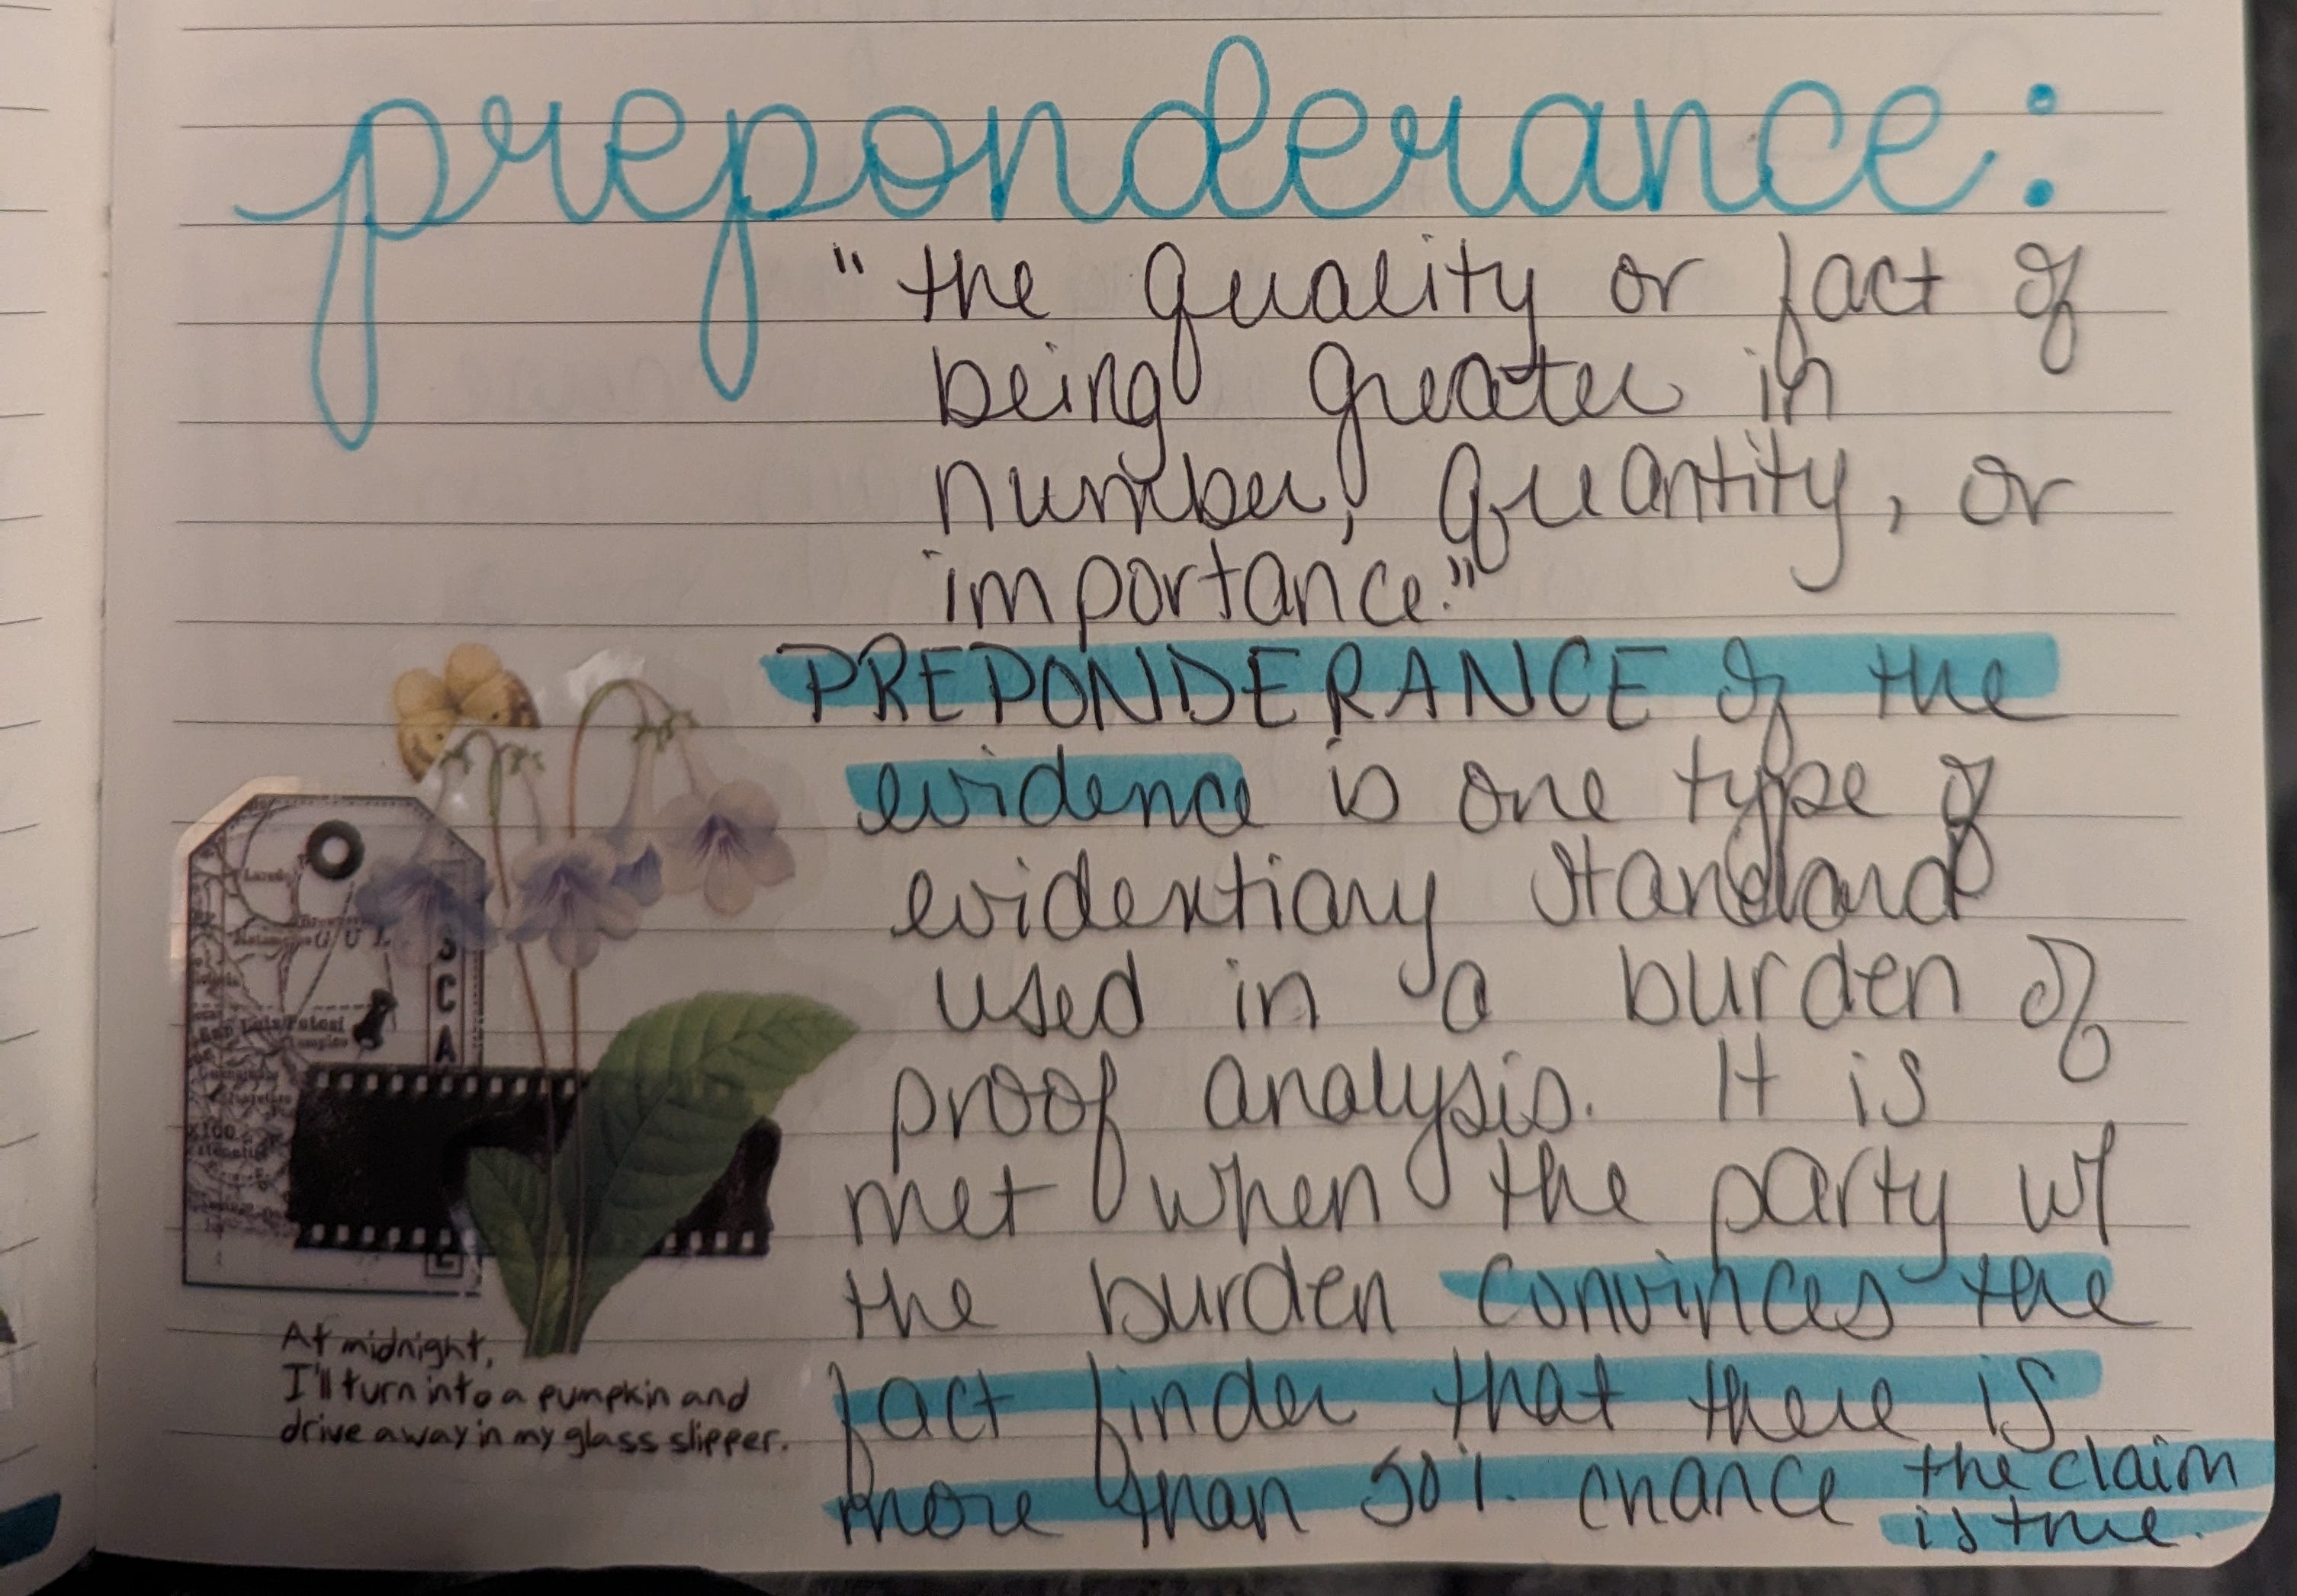 preponderance:
"the quality or fact of
being greater in
number, quantity, or
importance."
PREPONDERANCE of the
evidence is one type of
evidentiary standard
used in a burden of
proof analysis. It is
met when the party w/
the burden convinces the
fact finder that there is
more than 50% chance the claim
is true.
SCA
At midnight,
I'll turn into a pumpkin and
drive away in my glass slipper.